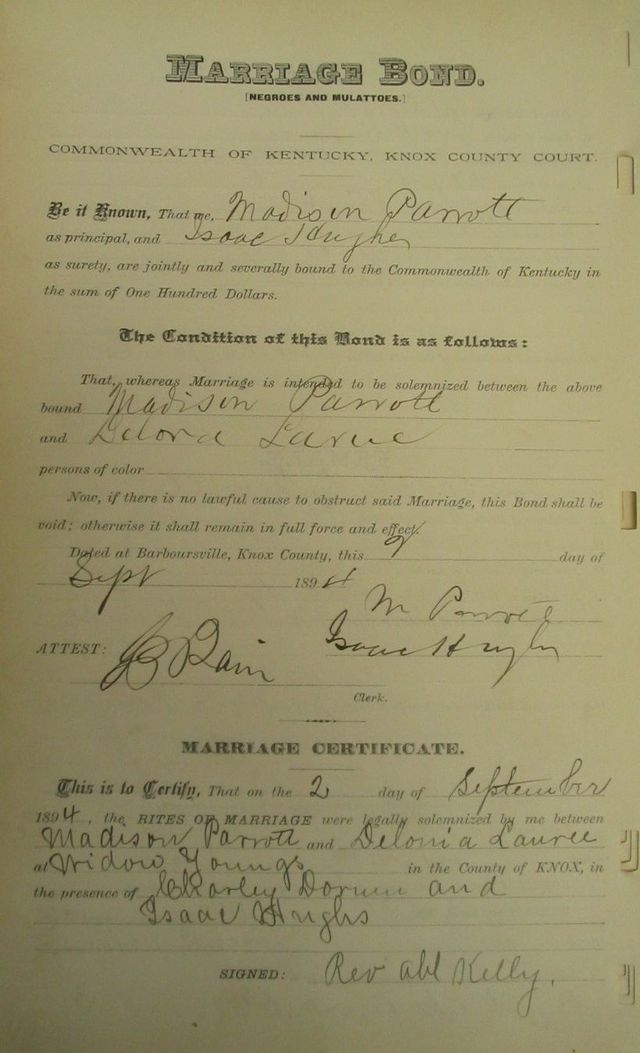 MARRIAGE BOND.
[NEGROES AND MULATTOES.]
COMMONWEALTH OF KENTUCKY, KNOX COUNTY COURT.
Be it Known, That we, Madison Parrott
as principal, and Isaac Hughes
as surety, are jointly and severally bound to the Commonwealth of Kentucky in
the sum of One Hundred Dollars.
The Condition of this Bond is as follows:
That, whereas Marriage is intended to be solemnized between the above
bound Madison Parrott
and Delora Larue
persons of color
Now, if there is no lawful cause to obstruct said Marriage, this Bond shall be
void; otherwise it shall remain in full force and effect.
Dated at Barboursville, Knox County, this 2 day of
Sept 1894
M Parrott
ATTEST: Isaac Hughs
Clerk.
MARRIAGE CERTIFICATE.
This is to Certify, That on the 2 day of September
1894, the RITES OF MARRIAGE were legally solemnized by me between
Madison Parrott and Delonia Lauree
at Widow Youngs in the County of KNOX, in
the presence of Charley Dorum and
Isaac Hughs
SIGNED: Rev abl Kelly.